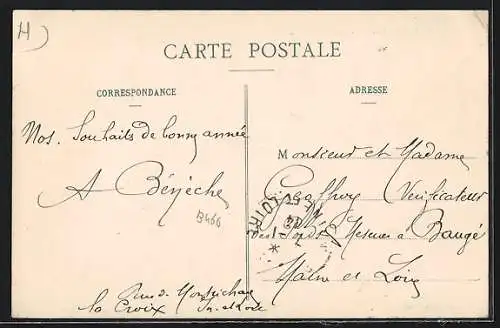 H)
CARTE POSTALE
CORRESPONDANCE
ADRESSE
Nos. Souhaits de bonne année
A Béryèche
B466
Monsieur et Madame
Vérificateur
des Poids Mesures à Baugé
Maine et Loire
LOIRE
Rue de Montrichard
La Croix In. et Loire